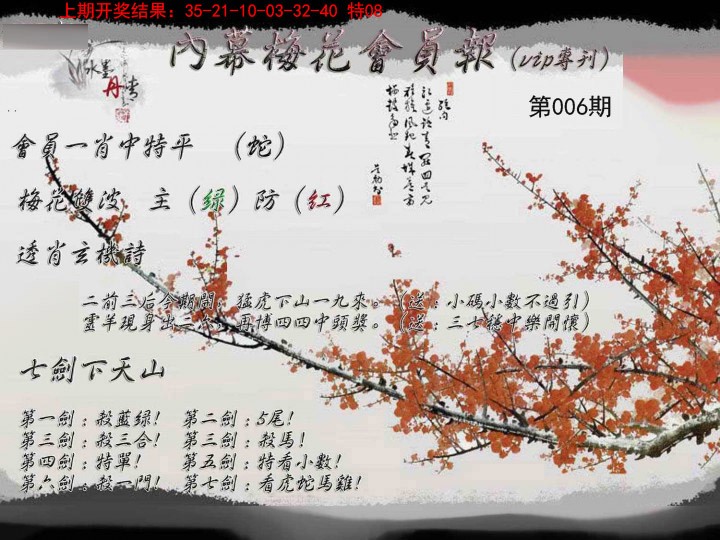 上期开奖结果：35-21-10-03-32-40 特08
內幕梅花會員報(vip專刊)
水墨
丹情
第006期
會員一肖中特平 （蛇）
梅花雙波 主（绿）防（红）
透肖玄機詩
二前三后今期開，猛虎下山一九來。（送：小碼小數不過引）
靈羊現身出三 再博四四中頭獎。（送：三七穩中樂開懷）
七劍下天山
第一劍：殺藍绿！ 第二劍：5尾！
第三劍：殺三合！ 第三劍：殺馬！
第四劍：特單！ 第五劍：特看小數！
第六劍：殺一門！ 第七劍：看虎蛇馬雞！